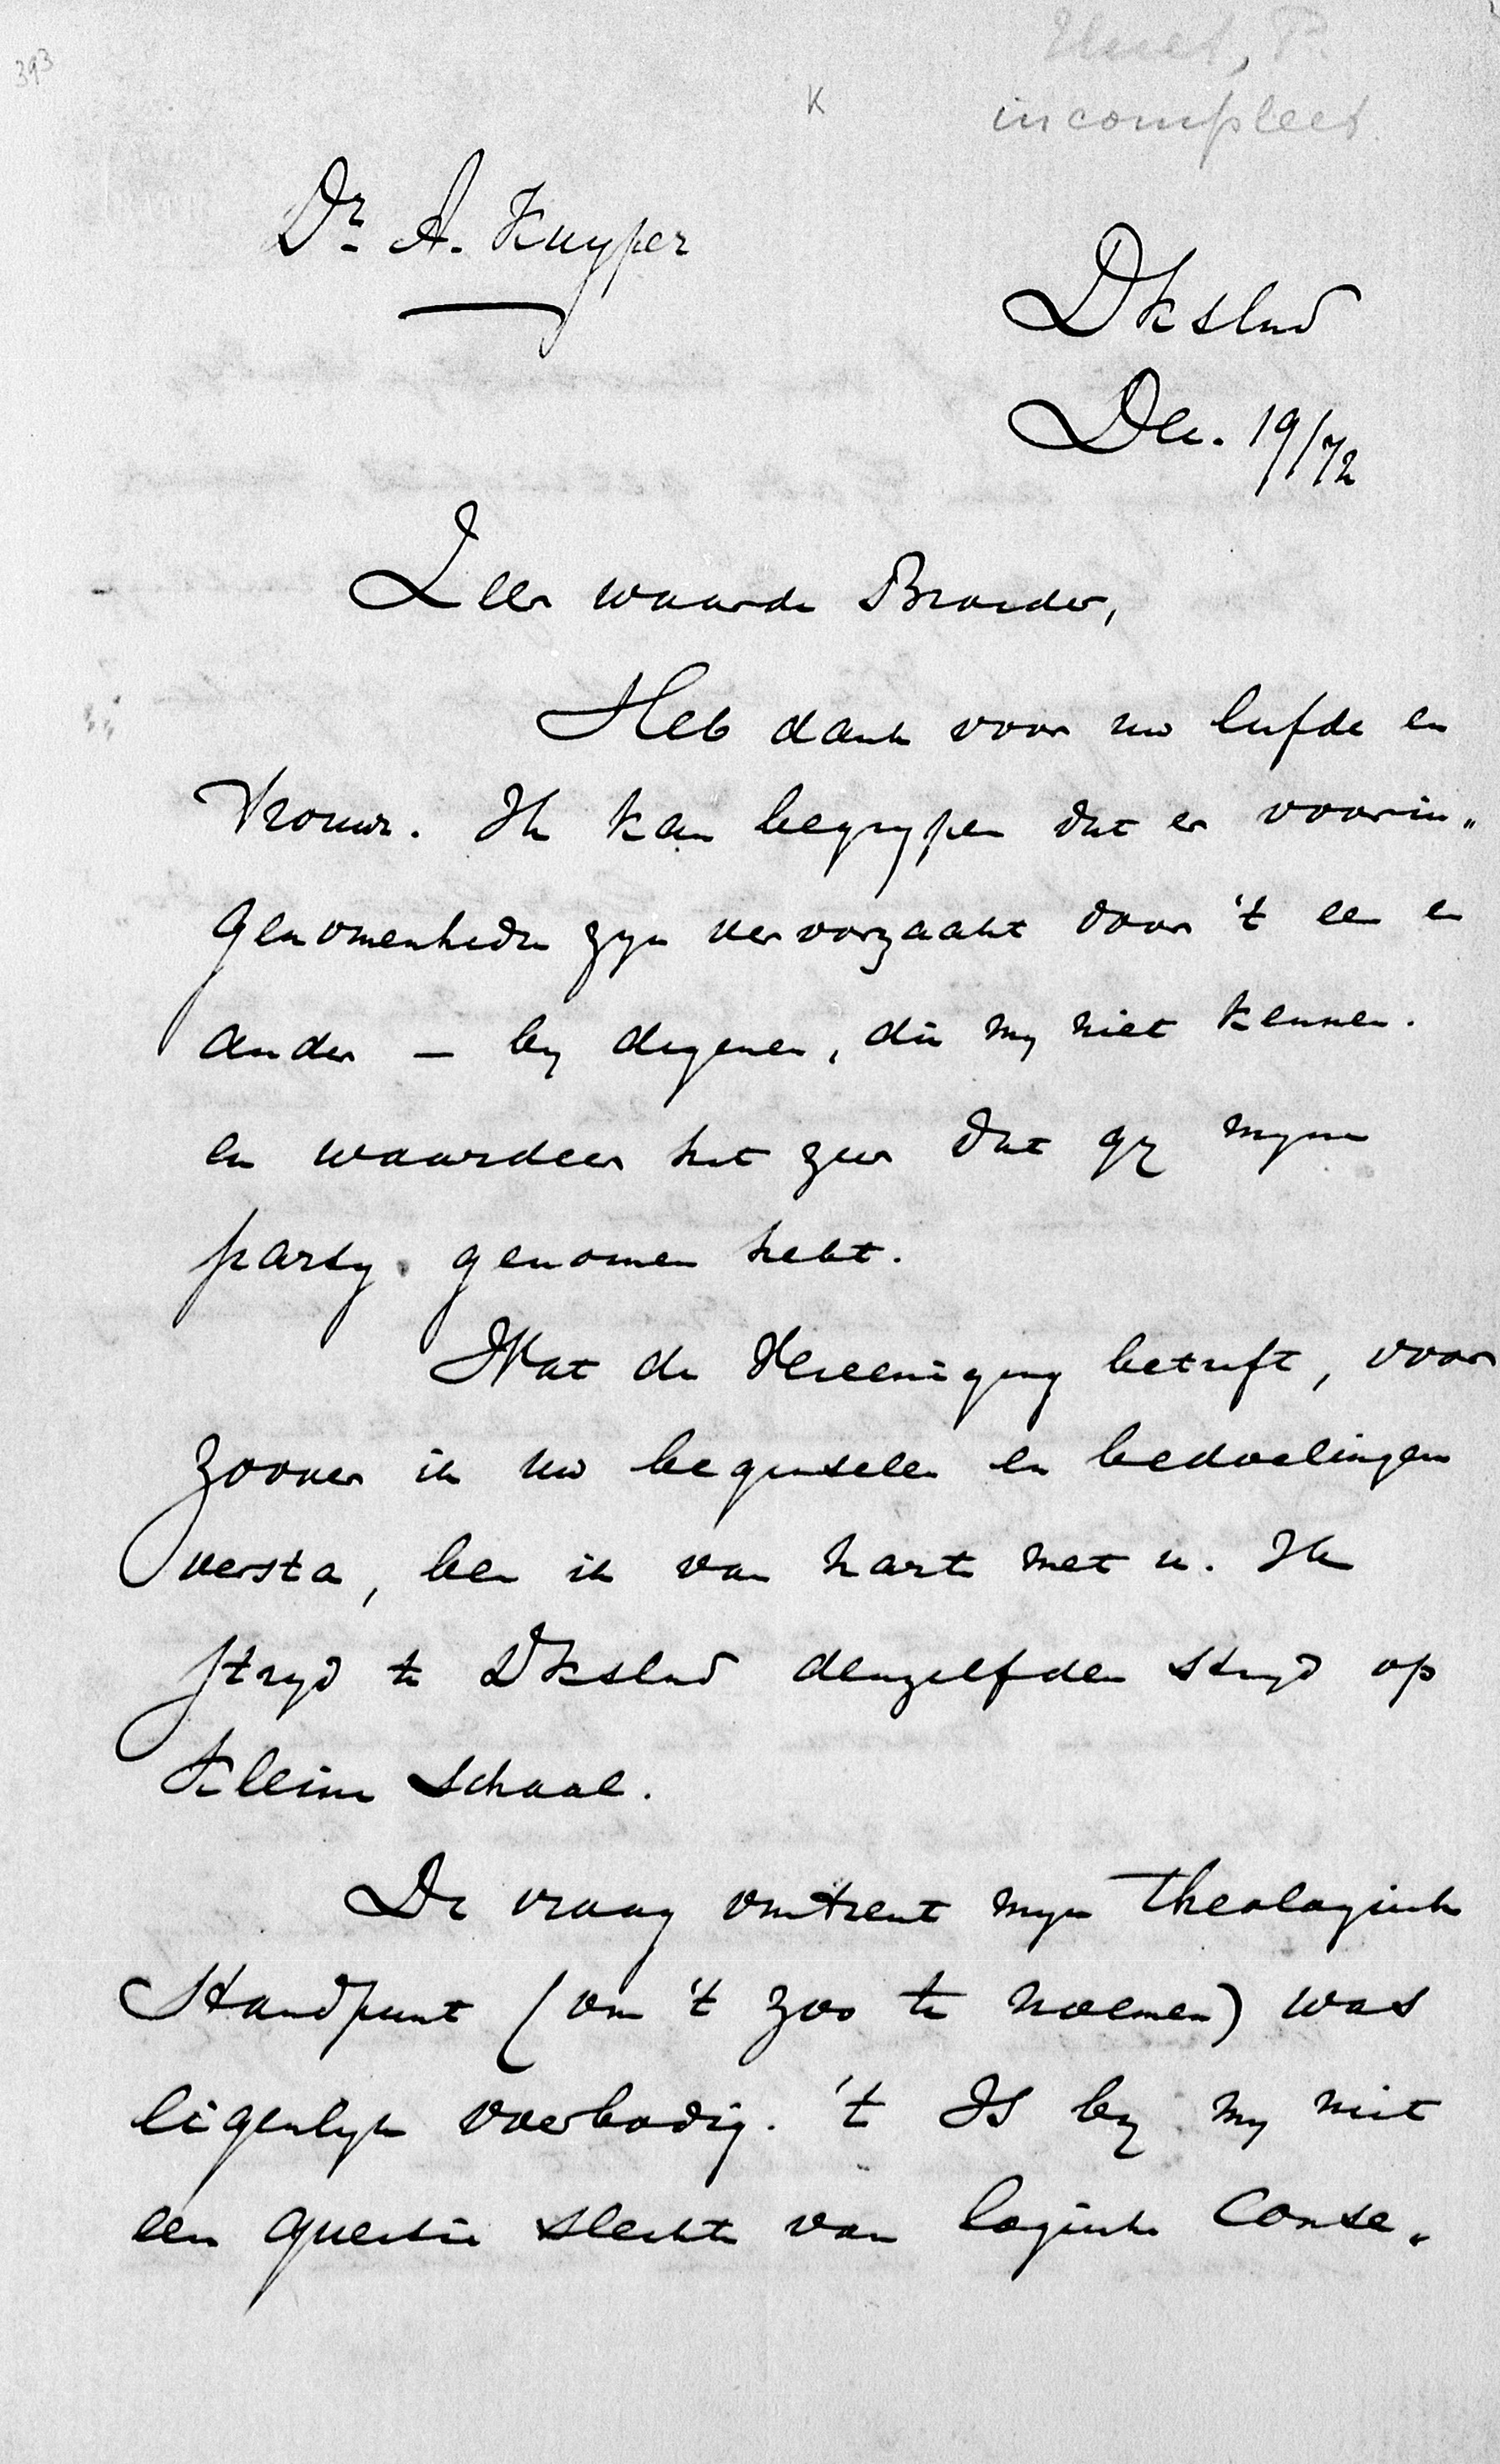 393
Huet, P.
K
incompleet.
Dr A. Kuyper
Dkslnd
Dec. 19/72
Zeer waarde Broeder,
Heb dank voor uw liefde en
trouw. Ik kan begrypen dat er voorin„
genomenheden zyn veroorzaakt door 't een en
ander – by degenen, die my niet kennen.
en waardeer het zeer dat gy myne
party genomen hebt.
Wat de Vereeniging betreft, voor
zoover ik uw beginselen en bedoelingen
versta, ben ik van harte met u. Ik
stryd te Dkslnd denzelfden stryd op
kleine schaal.
De vraag omtrent myn theologisch
Standpunt (om 't zoo te noemen) was
eigenlyk overbodig. 't Is by my niet
een questie slechts van logische Conse„